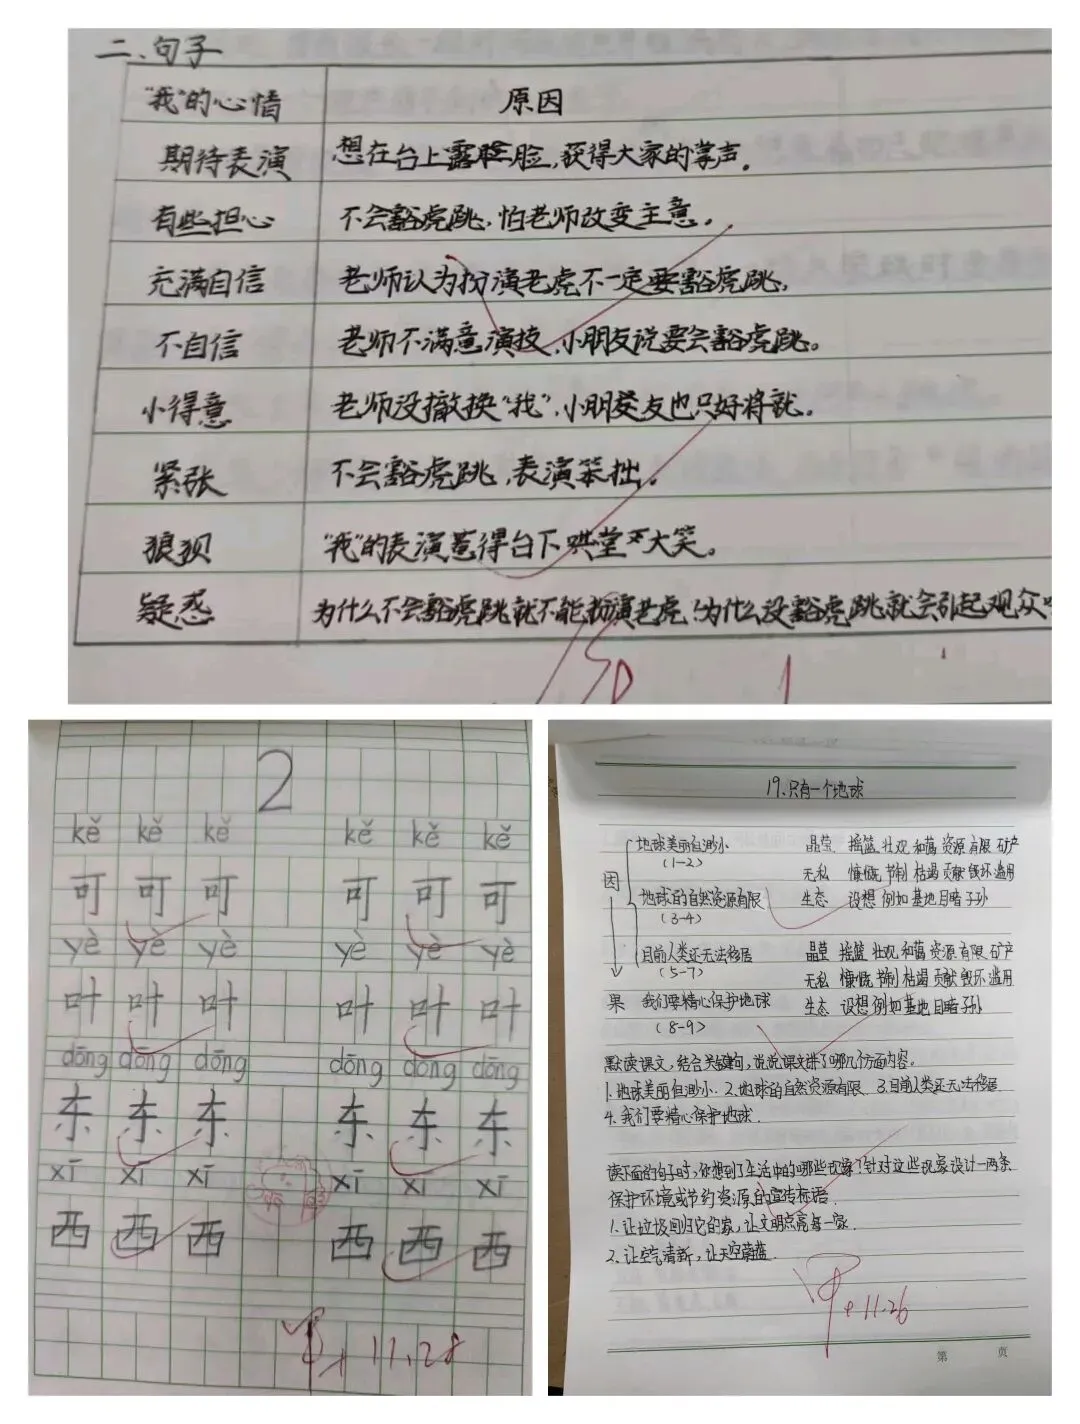 二、句子
"我"的心情 原因
期待表演 想在台上露脸,获得大家的掌声。
有些担心 不会豁虎跳,怕老师改变主意。
充满自信 老师认为扮演老虎不一定要豁虎跳,
不自信 老师不满意演技,小朋友说要会豁虎跳。
小得意 老师没撤换"我",小朋友也只好将就。
紧张 不会豁虎跳,表演笨拙。
狼狈 "我"的表演惹得台下哄堂大笑。
疑惑 为什么不会豁虎跳就不能扮演老虎,为什么没豁虎跳就会引起观众
2
kě kě kě kě kě kě
可 可 可 可 可 可
yè yè yè yè yè yè
叶 叶 叶 叶 叶 叶
dōng dōng dōng dōng dōng dōng
东 东 东 东 东 东
xī xī xī xī xī xī
西 西 西 西 西 西
11.28
19.只有一个地球
地球美丽但渺小 晶莹 摇篮 壮观 和蔼 资源 有限 矿产
(1-2) 无私 慷慨 节制 枯竭 贡献 毁坏 滥用
因
地球的自然资源有限 生态 设想 例如 基地 目睹 子孙
(3-4)
目前人类还无法移居 晶莹 摇篮 壮观 和蔼 资源 有限 矿产
(5-7) 无私 慷慨 节制 枯竭 贡献 毁坏 滥用
果 我们要精心保护地球 生态 设想 例如 基地 目睹 子孙
(8-9)
默读课文,结合关键句,说说课文讲了哪几方面内容。
1.地球美丽但渺小 2.地球的自然资源有限 3.目前人类还无法移居
4.我们要精心保护地球.
读下面的句子时,你想到了生活中的哪些现象?针对这些现象设计一两条
保护环境或节约资源的宣传标语.
1.让垃圾回归它的家,让文明点亮每一家.
2.让空气清新,让天空蔚蓝.
11.26
第 页